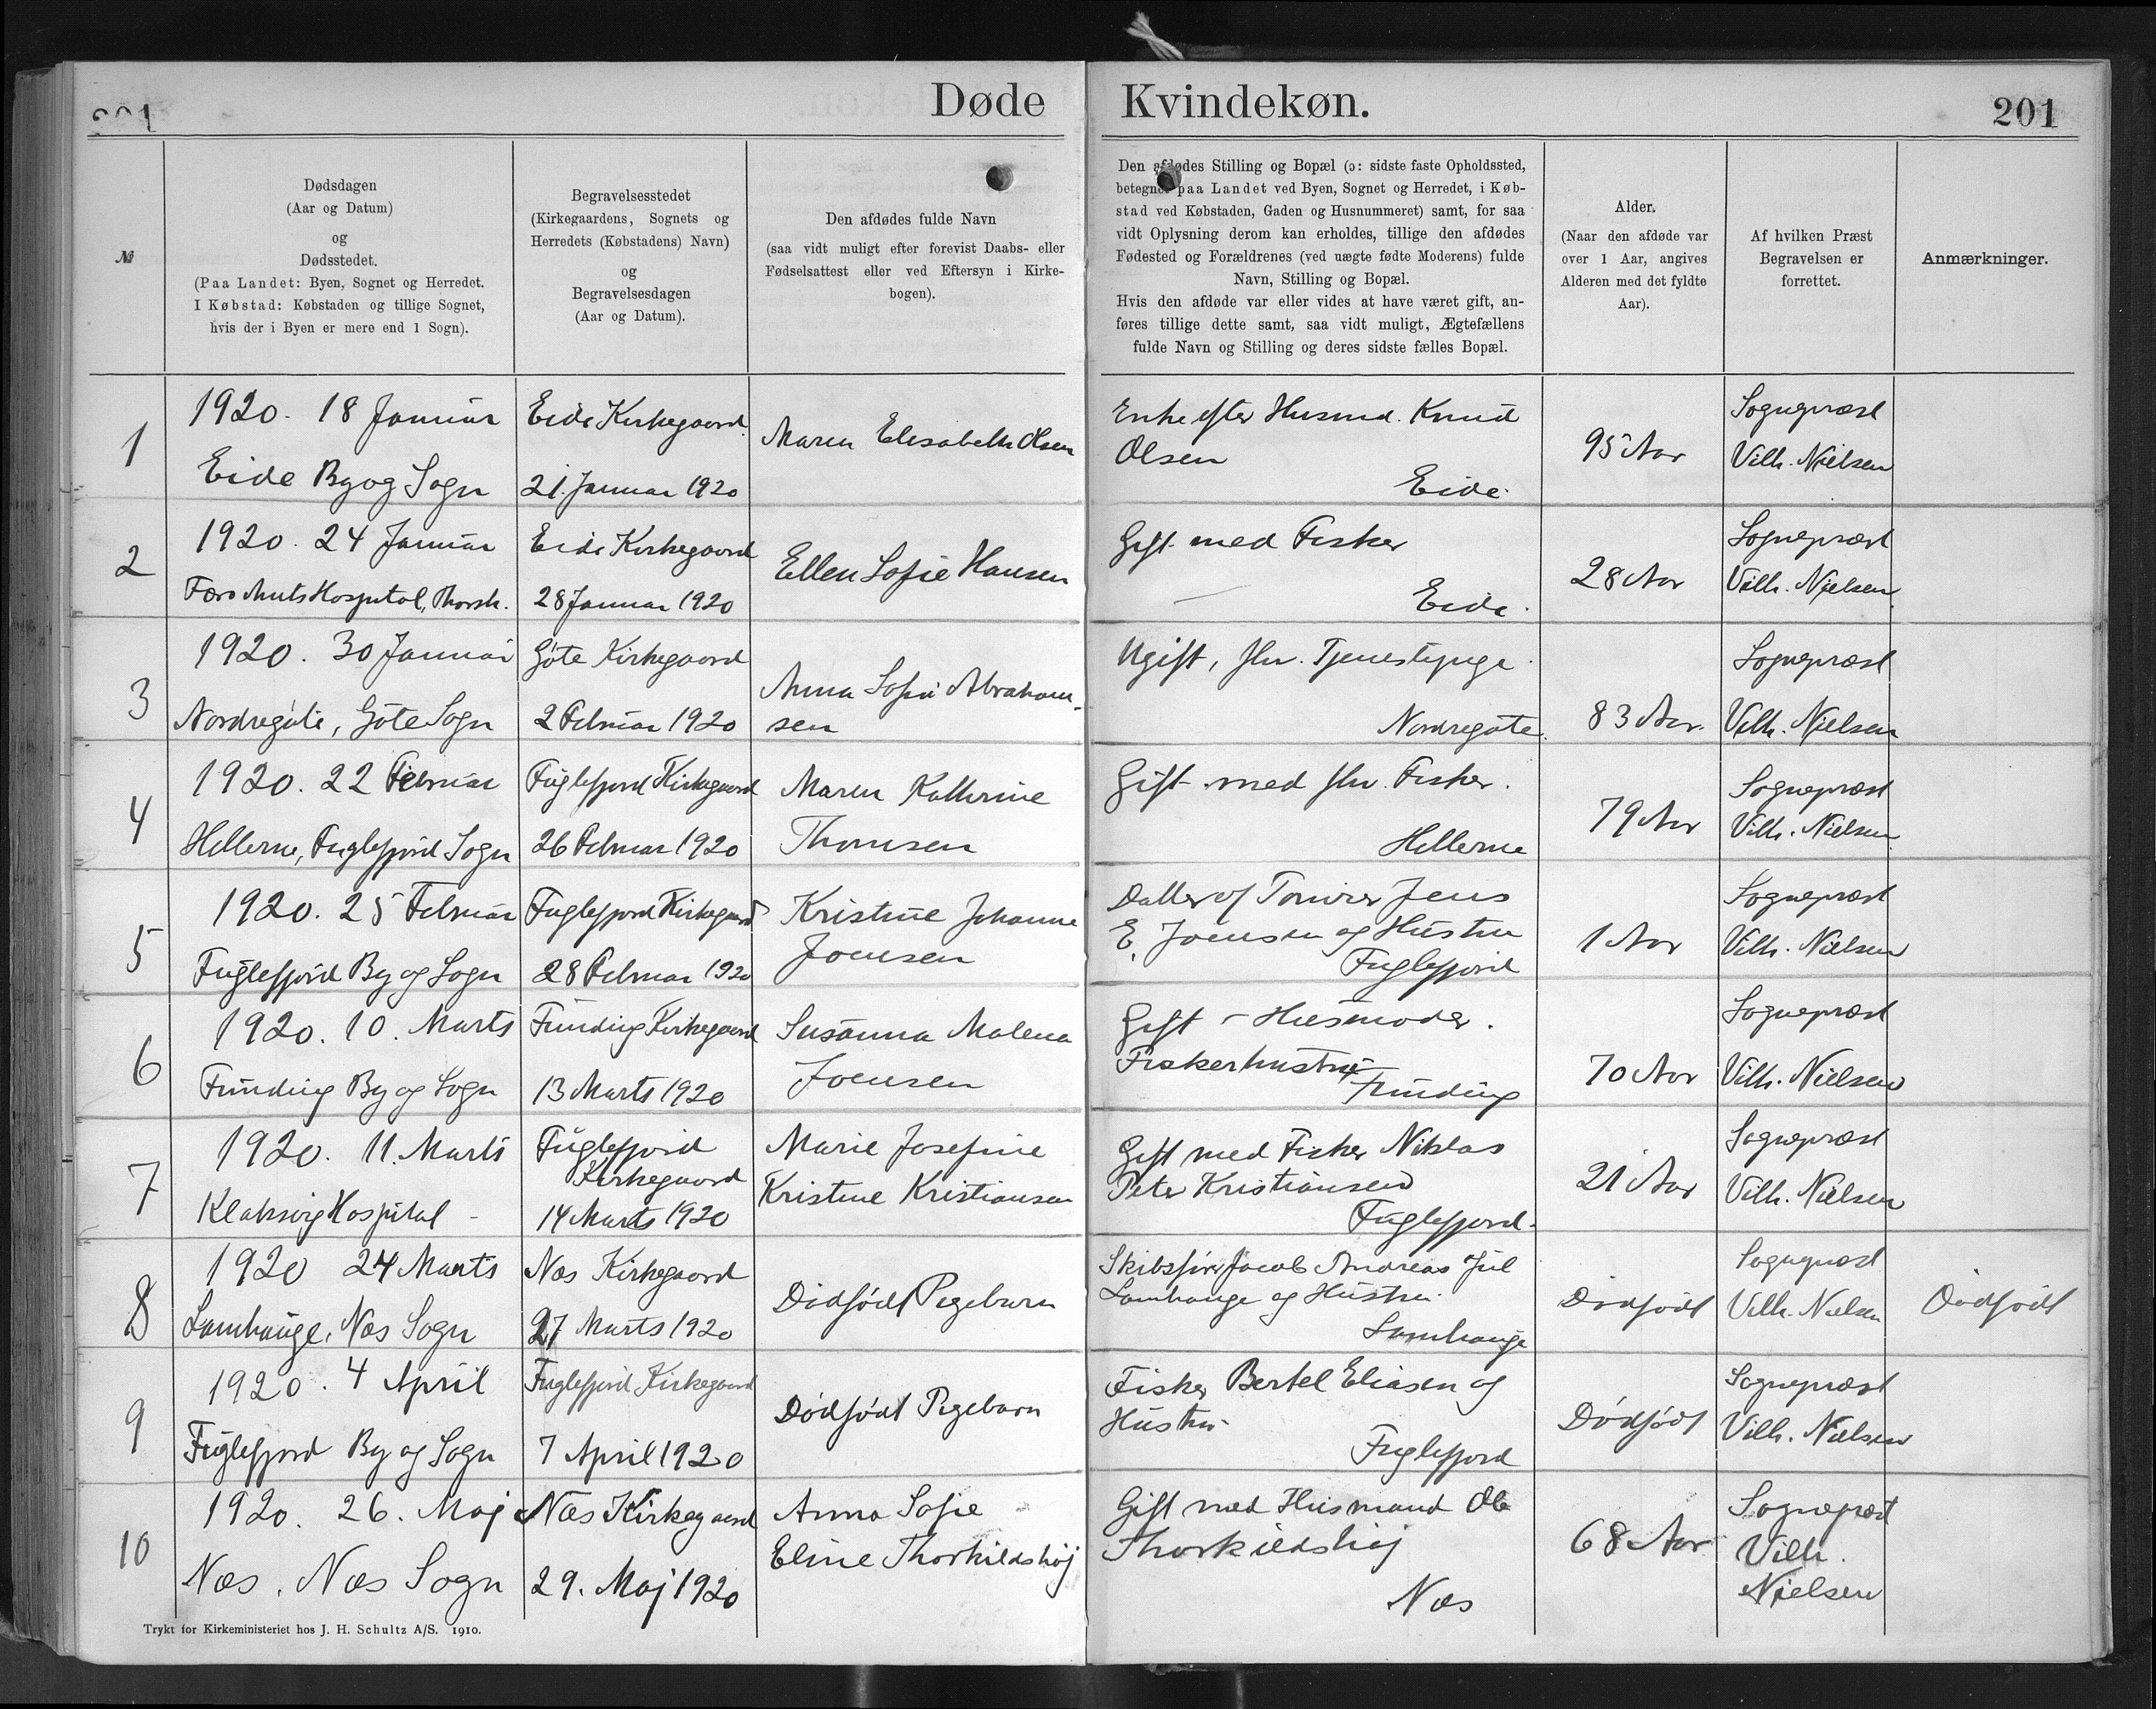 201
Døde
Kvindekøn.
201
№
Dødsdagen
(Aar og Datum)
og
Dødsstedet.
(Paa Landet: Byen, Sognet og Herredet.
I Købstad: Købstaden og tillige Sognet,
hvis der i Byen er mere end 1 Sogn).
Begravelsesstedet
(Kirkegaardens, Sognets og
Herredets (Købstadens) Navn)
og
Begravelsesdagen
(Aar og Datum).
Den afdødes fulde Navn
(saa vidt muligt efter forevist Daabs- eller
Fødselsattest eller ved Eftersyn i Kirke-
bogen).
Den afdødes Stilling og Bopæl (ɔ: sidste faste Opholdssted,
betegnet paa Landet ved Byen, Sognet og Herredet, i Køb-
stad ved Købstaden, Gaden og Husnummeret) samt, for saa
vidt Oplysning derom kan erholdes, tillige den afdødes
Fødested og Forældrenes (ved uægte fødte Moderens) fulde
Navn, Stilling og Bopæl.
Hvis den afdøde var eller vides at have været gift, an-
føres tillige dette samt, saa vidt muligt, Ægtefællens
fulde Navn og Stilling og deres sidste fælles Bopæl.
Alder.
(Naar den afdøde var
over 1 Aar, angives
Alderen med det fyldte
Aar).
Af hvilken Præst
Begravelsen er
forrettet.
Anmærkninger.
1
1920. 18 Januar
Eide By og Sogn
Eide Kirkegaard.
21. Januar 1920
Maren Elisabeth Olsen
Enke efter Husmd. Knud
Olsen
Eide.
95 Aar
Sognepræst
Vilh. Nielsen
2
1920. 24 Januar
Færø Amts Hospital, Thorsh.
Eide Kirkegaard
28 Januar 1920
Ellen Sofie Hansen
Gift med Fisker
Eide.
28 Aar
Sognepræst
Vilh. Nielsen.
3
1920. 30 Januar
Nordregøte, Gøte Sogn
Gøte Kirkegaard
2 Februar 1920
Anna Sofie Abraham-
sen
Ugift, fhv. Tjenestepige.
Nordregøte.
83 Aar.
Sognepræst
Vilh. Nielsen
4
1920. 22 Februar
Hellerne, Fuglefjord Sogn
Fuglefjord Kirkegaard
26 Februar 1920
Maren Kathrine
Thomsen
Gift med fhv. Fisker.
Hellerne
79 Aar
Sognepræst
Vilh. Nielsen
5
1920. 25 Februar
Fuglefjord By og Sogn
Fuglefjord Kirkegaard
28 Februar 1920
Kristine Johanne
Joensen
Datter af Tømrer Jens
E. Joensen og Hustru
Fuglefjord
1 Aar
Sognepræst
Vilh. Nielsen
6
1920. 10. Marts
Funding By og Sogn
Funding Kirkegaard
13 Marts 1920
Susanna Malena
Joensen
Gift - Husmoder.
Fiskerhustru
Funding
70 Aar
Sognepræst
Vilh. Nielsen
7
1920. 11. Marts
Klaksvig Hospital -
Fuglefjord
Kirkegaard
14 Marts 1920
Marie Josefine
Kristine Kristiansen
Gift med Fisker Niklas
Peter Kristiansen
Fuglefjord.
21 Aar
Sognepræst
Vilh. Nielsen
8
1920 24 Marts
Lamhauge, Næs Sogn
Næs Kirkegaard
27 Marts 1920
Dødfødt Pigebarn
Skibsfører Jacob Andreas Jul
Lamhauge og Hustru.
Lamhauge
Dødfødt
Sognepræst
Vilh. Nielsen
Dødfødt
9
1920. 4 April
Fuglefjord By og Sogn
Fuglefjord Kirkegaard
7 April 1920
Dødfødt Pigebarn
Fisker Bertel Eliasen og
Hustru
Fuglefjord
Dødfødt
Sognepræst
Vilh. Nielsen
10
1920. 26. Maj
Næs. Næs Sogn
Næs Kirkegaard
29. Maj 1920
Anna Sofie
Eline Thorkildshøj
Gift med Husmand Ole
Thorkildshøj
Næs
68 Aar
Sognepræst
Vilh.
Nielsen
Trykt for Kirkeministeriet hos J. H. Schultz A/S. 1910.